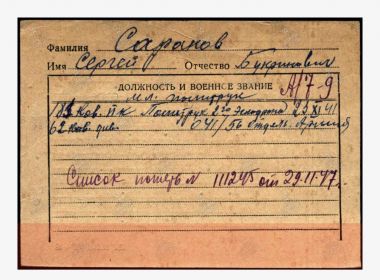 Фамилия Саранов
Имя Сергей Отчество Букринович
ДОЛЖНОСТЬ И ВОЕННОЕ ЗВАНИЕ А/7-9
мл. политрук
Кав. п к Политрук 2го Эскадрона 23 XI 41
62 Кав. див. Отдель. Армий
Список потерь № 111245 от 29.11.47г.